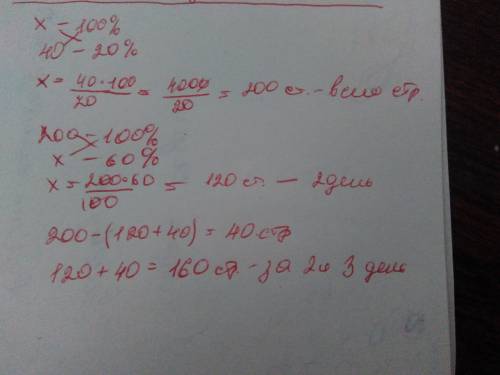 x – 100%
40 – 20%
x = 40·100/20 = 4000/20 = 200 ст. – всего стр.
200 – 100%
x – 60%
x = 200·60/100 = 120 ст. — 2 день
200 – (120 + 40) = 40 стр
120 + 40 = 160 стр – за 2 и 3 день